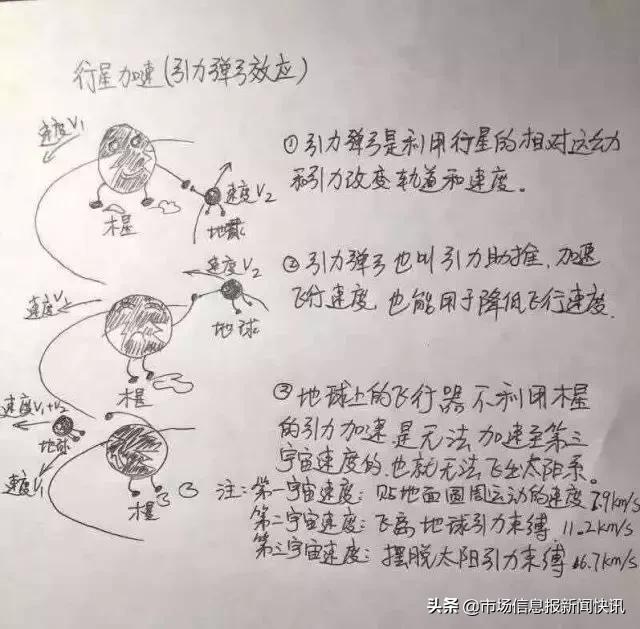 行星加速(引力弹弓效应)
速度V₁
速度V₂
木星
地球
①引力弹弓是利用行星的相对运动
和引力改变轨道和速度。
速度V₂
速度V₁
地球
木星
②引力弹弓也叫引力助推,加速
飞行速度,也能用于降低飞行速度.
速度V₁+V₂
地球
速度V₁
木星
③地球上的飞行器不利用木星
的引力加速是无法加速至第三
宇宙速度的,也就无法飞出太阳系。
注:第一宇宙速度:贴地面圆周运动的速度7.9km/s
第二宇宙速度:飞离地球引力束缚11.2km/s
第三宇宙速度:摆脱太阳引力束缚16.7km/s
头条@市场信息报新闻快讯